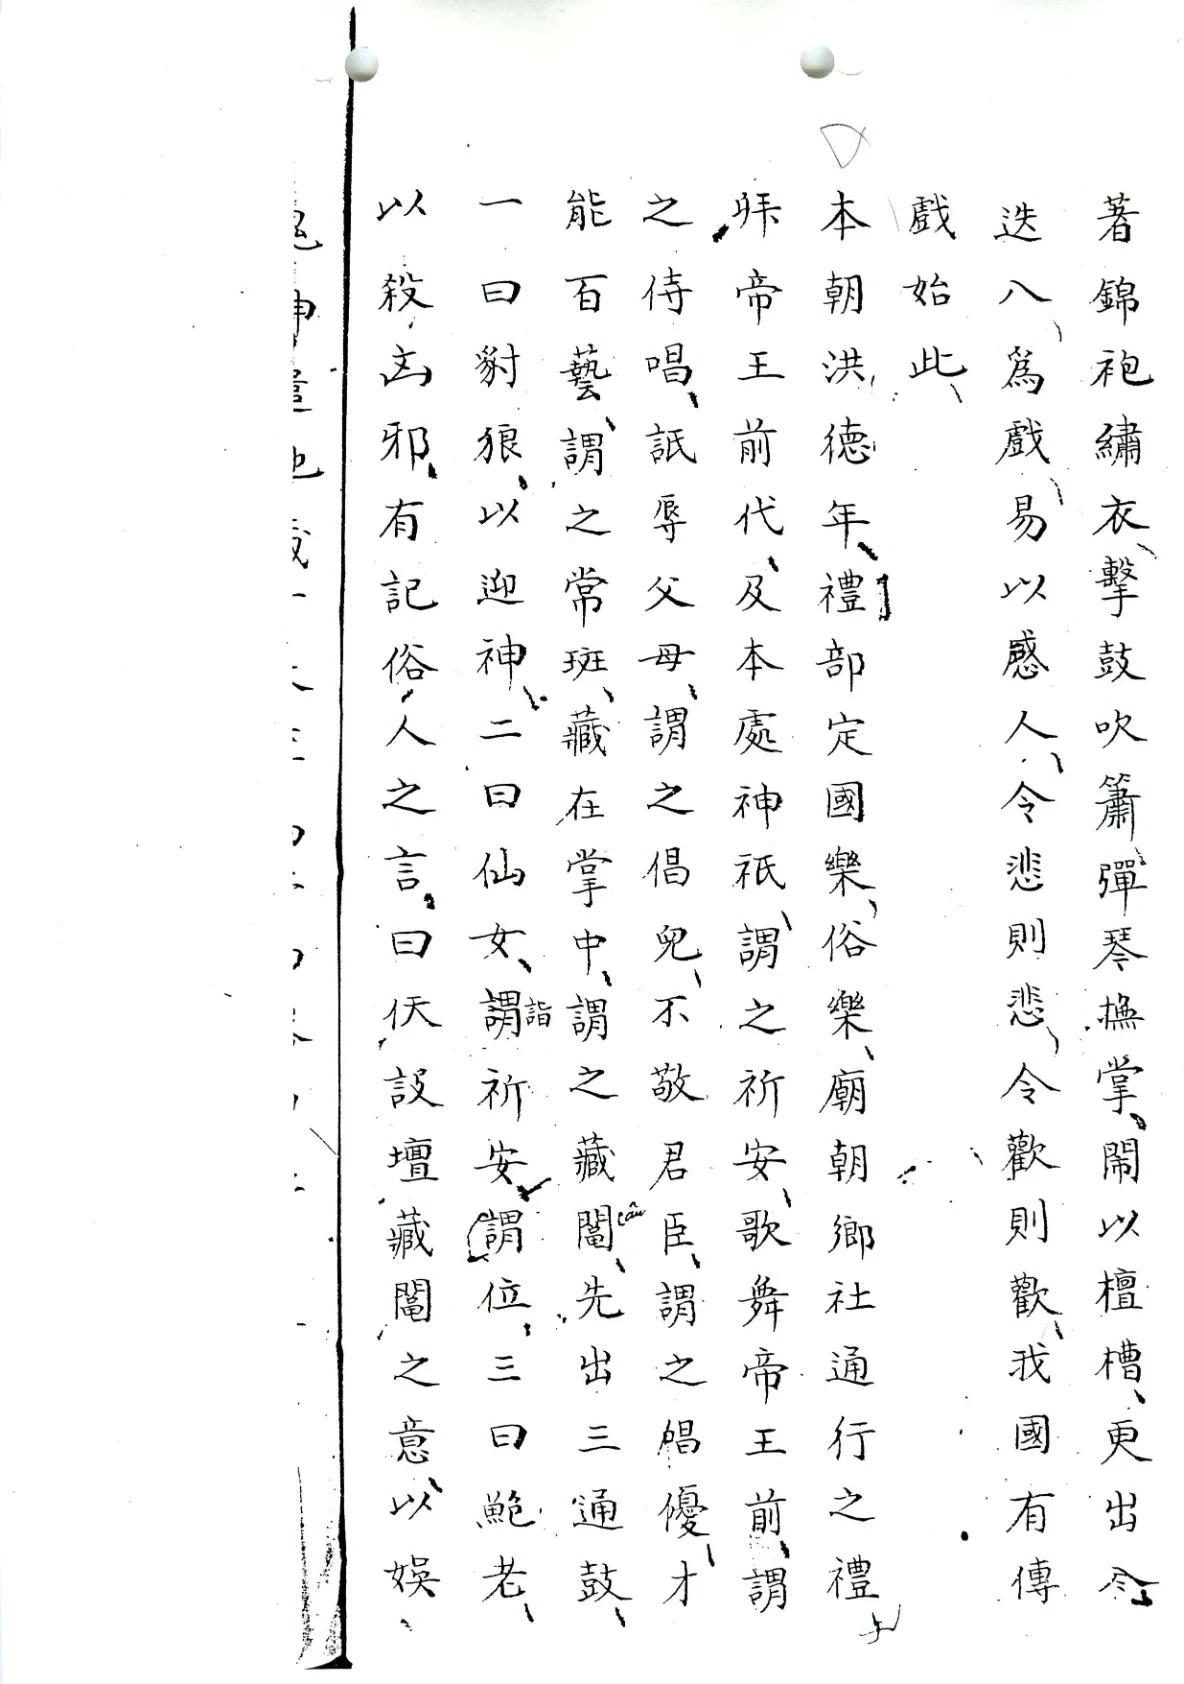 著錦袍繡衣擊鼓吹簫彈琴撫掌鬧以檀槽更出令
迭入爲戲易以感人令悲則悲令歡則歡我國有傳
戲始此
本朝洪德年禮部定國樂俗樂廟朝鄉社通行之禮
拜帝王前代及本處神祇謂之祈安歌舞帝王前謂
之侍唱詆辱父母謂之倡兒不敬君臣謂之唱優才
能百藝謂之常班藏在掌中謂之藏鬮先出三通鼓
câu
一曰豺狼以迎神二曰仙女謂祈安謂位三曰鮑老
詣
以殺凶邪有記俗人之言曰伏設壇藏鬮之意以娛